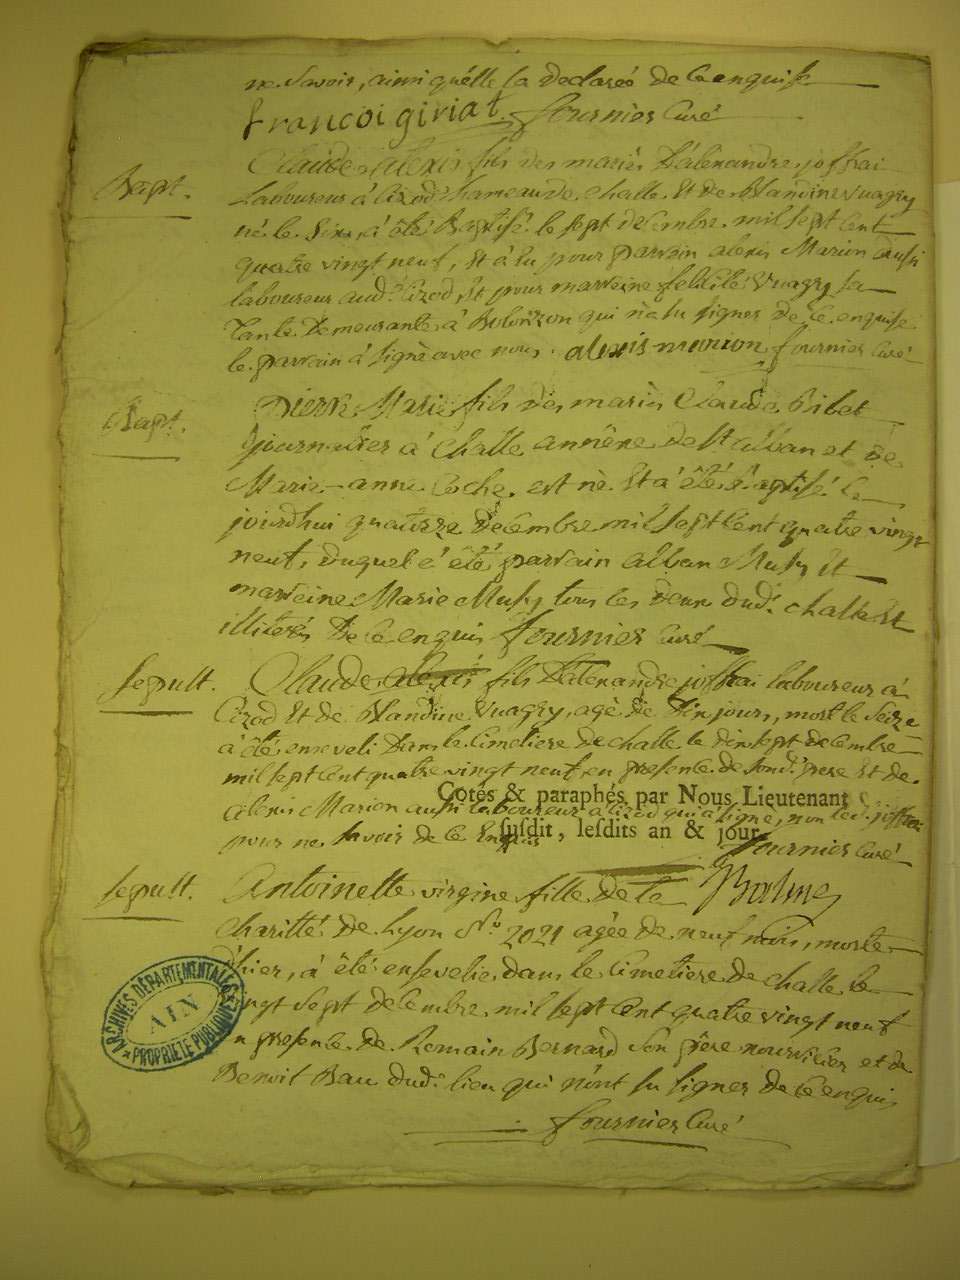 ne savoir, ainsi qu'elle la declaré de ce enquise
francoi giriat. fournier Curé
Bapt.
Claude alexis fils des mariés d'alexandre joffrai
laboureur à Cizod hameau de Challe Et de Blandine Vuagry
né le six, à été Baptisé le sept decembre mil sept Cent
quatre vingt neuf, Et à Eu pour parrain alexis Marion aussi
laboureur aud.t Cizod, Et pour marreine felicité Vuagry sa
Tante Demeurante à qui n'a su signer de ce enquise
le parrain à signé avec nous. alexis marion fournier Curé
Bapt.
Pierre Marie fils des mariés Claude Pibet
journalier à Challe annexe de St alban et de
Marie-anne Coche est né Et à été Baptisé le
jourdhui quatorze decembre mil sept Cent quatre vingt
neuf, duquel à été parrain alban Et
marreine Marie tous les deux dud.t challe Et
illiterés De ce enquis fournier Curé
Sepult.
Claude alexis fils D'alexandre joffrai laboureur à
Cizod Et de Blandine Vuagry, agé de Dix jours, mort le Seize
à été enseveli Dans le Cimetiere de challe le dix sept decembre
mil sept cent quatre vingt neuf, en presence de sond.t pere Et de
Cotés & paraphés par Nous Lieutenant
alexis Marion aussi laboureur à Cizod qui à signé, non led.t joffrai
susdit, lesdits an & jour.
pour ne savoir de ce Enquis fournier Curé
Balme
Sepult.
Antoinette virgine fille de la
Charitté de Lyon N.o 2021 agée de neuf mois, morte
hier, à été ensevelie dans le Cimetiere de challe le
vingt sept decembre mil sept Cent quatre vingt neuf
en presence de Romain Bernard son père nourricier et de
Benoit Bau dud.t lieu qui n'ont su signer de ce enquis
fournier Curé
ARCHIVES DÉPARTEMENTALES
AIN
PROPRIÉTÉ PUBLIQUE